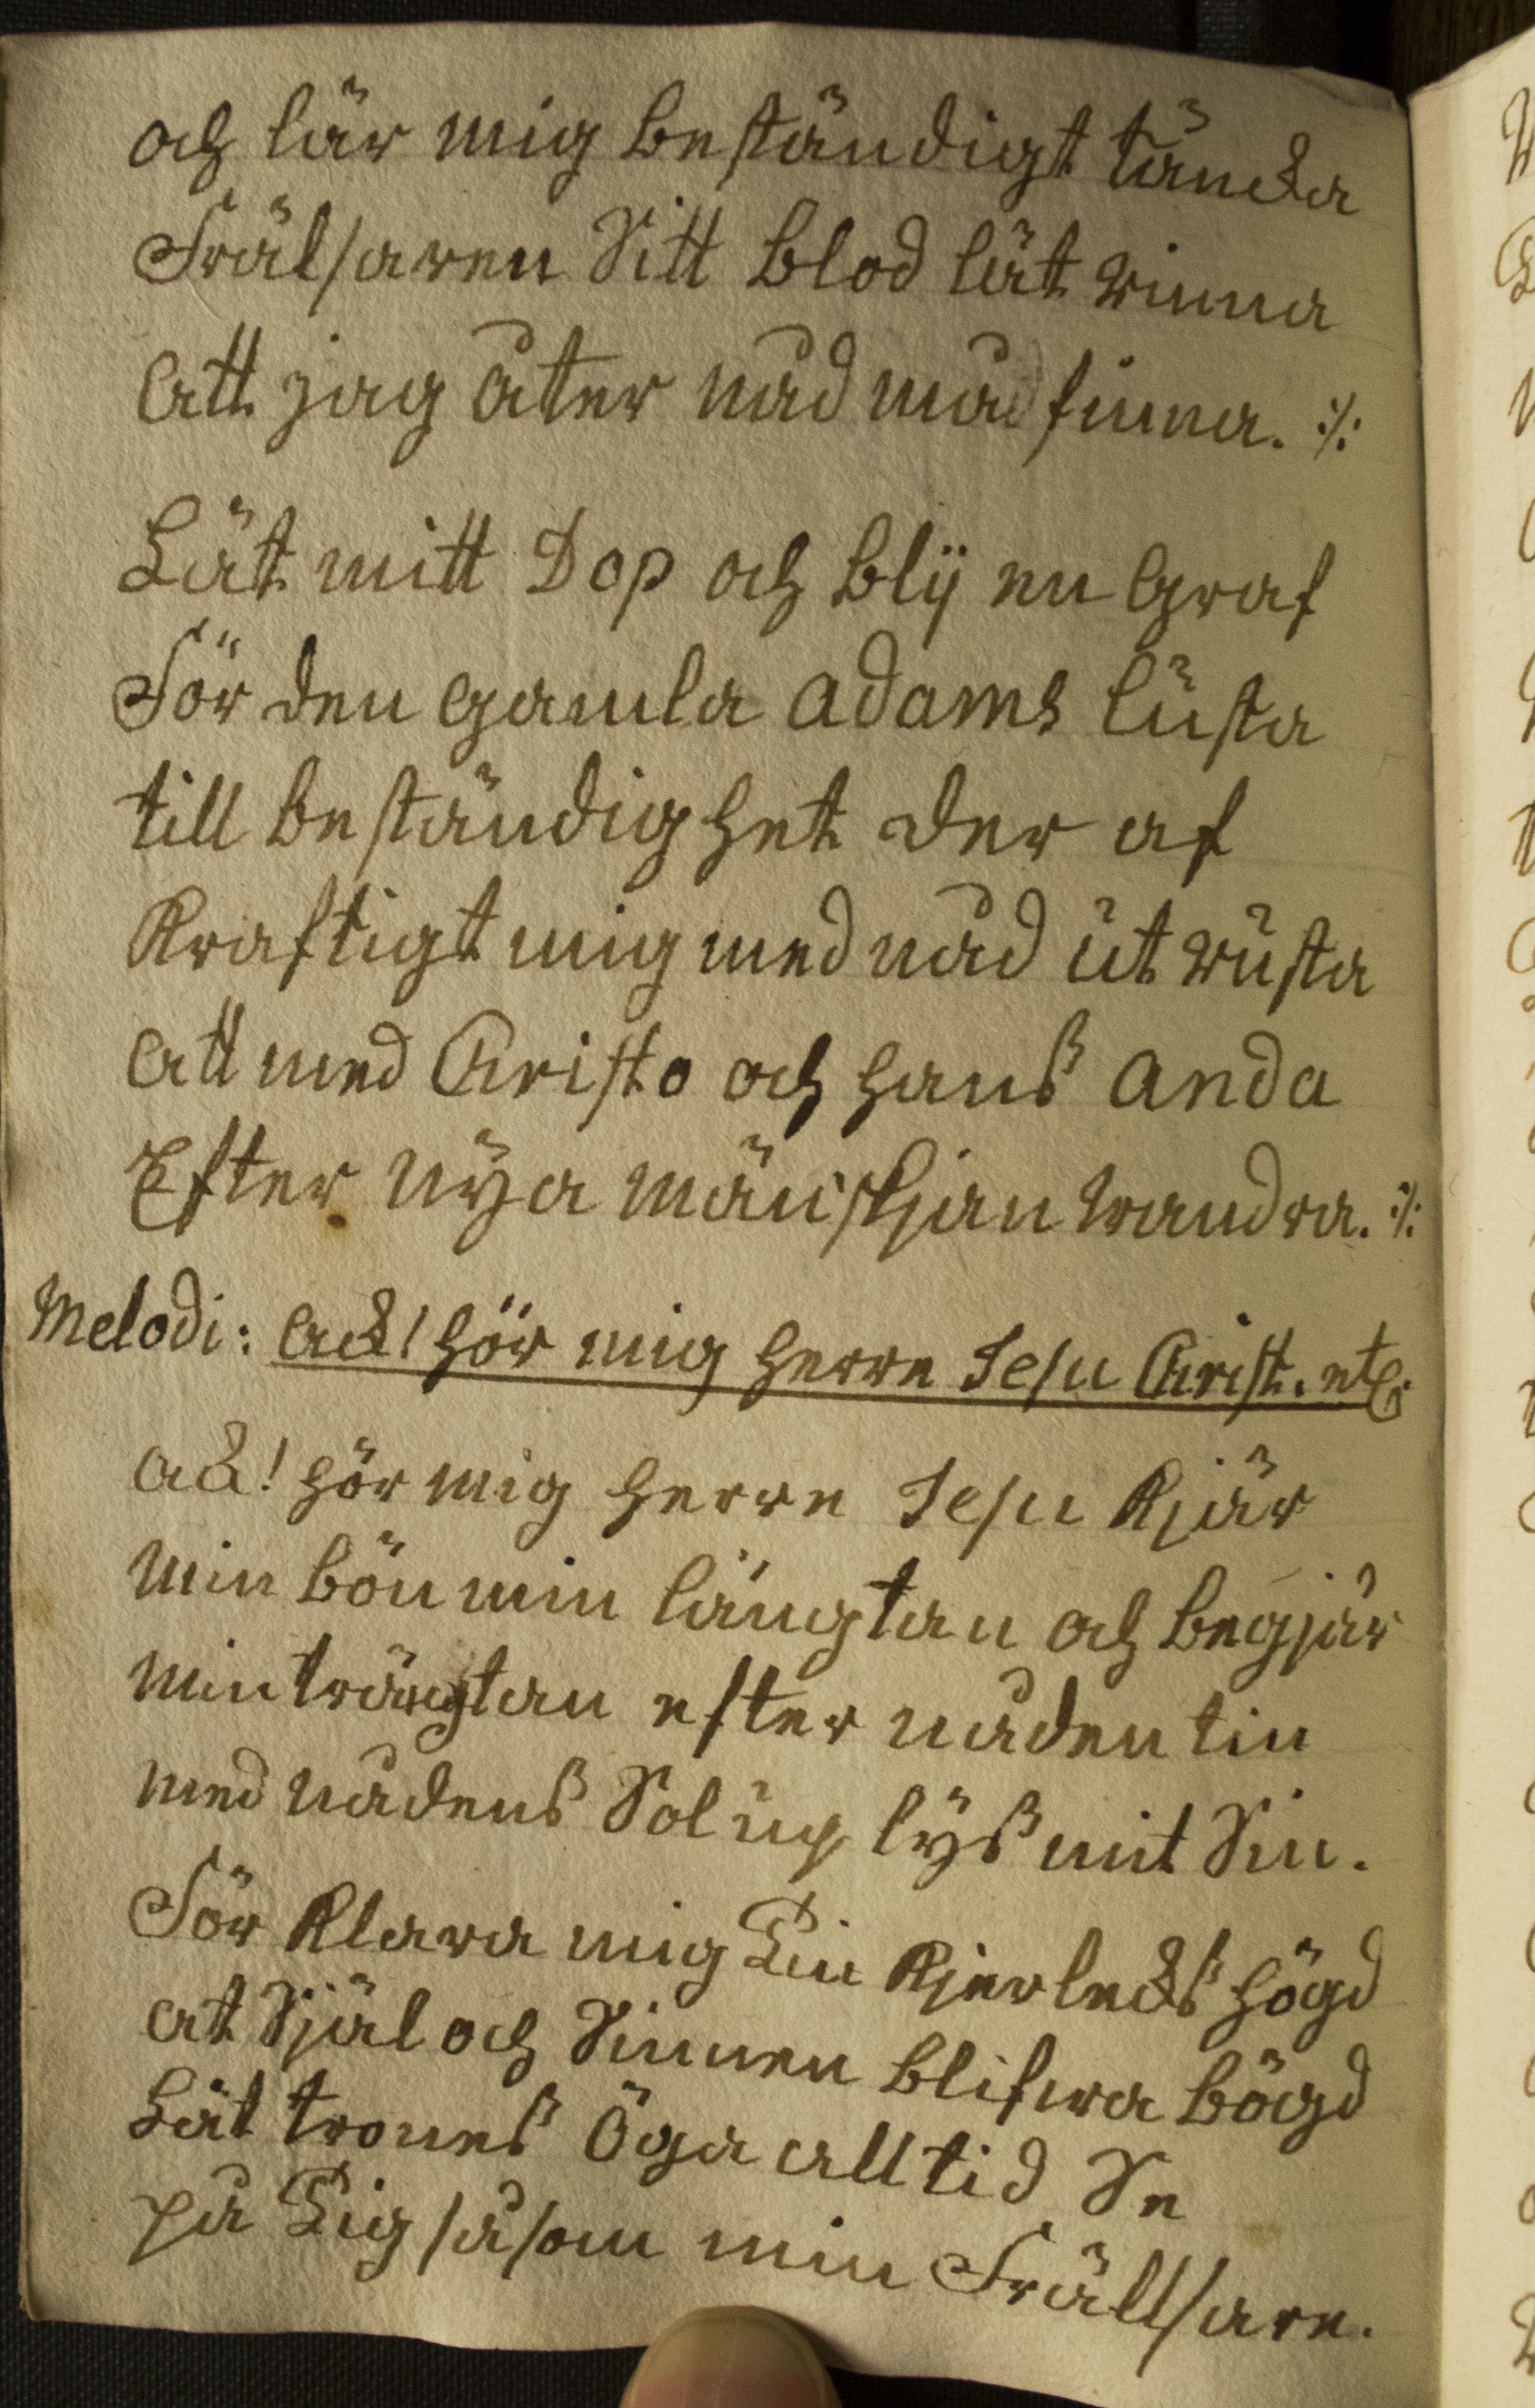 och lär mig beständigt täncka
Frälsaren Sitt blod lät rinna
Att jag åter nåd må finna. :/:
Låt mitt Dop och blij en Graf
För den Gamla Adams Lusta
till beständighet der af
Kraftigt mig med nåd ut rusta
Att med Christo och hans Anda
Efter nya mäniskjan wandra. :/:
Melodi: Ack! hör mig Herre Jesu Christ. etc:
Ack! hör mig Herre Jesu Kjär
Min bön min längtan och begjär
Min trängtan efter nåden tin
med nådens Sol up lys mit Sin.
För Klara mig Din Kjerlecks högd
at Själ och Sinnen blifwa bögd
Låt trones Öga alltid Se
på Dig såsom min Frällsare.